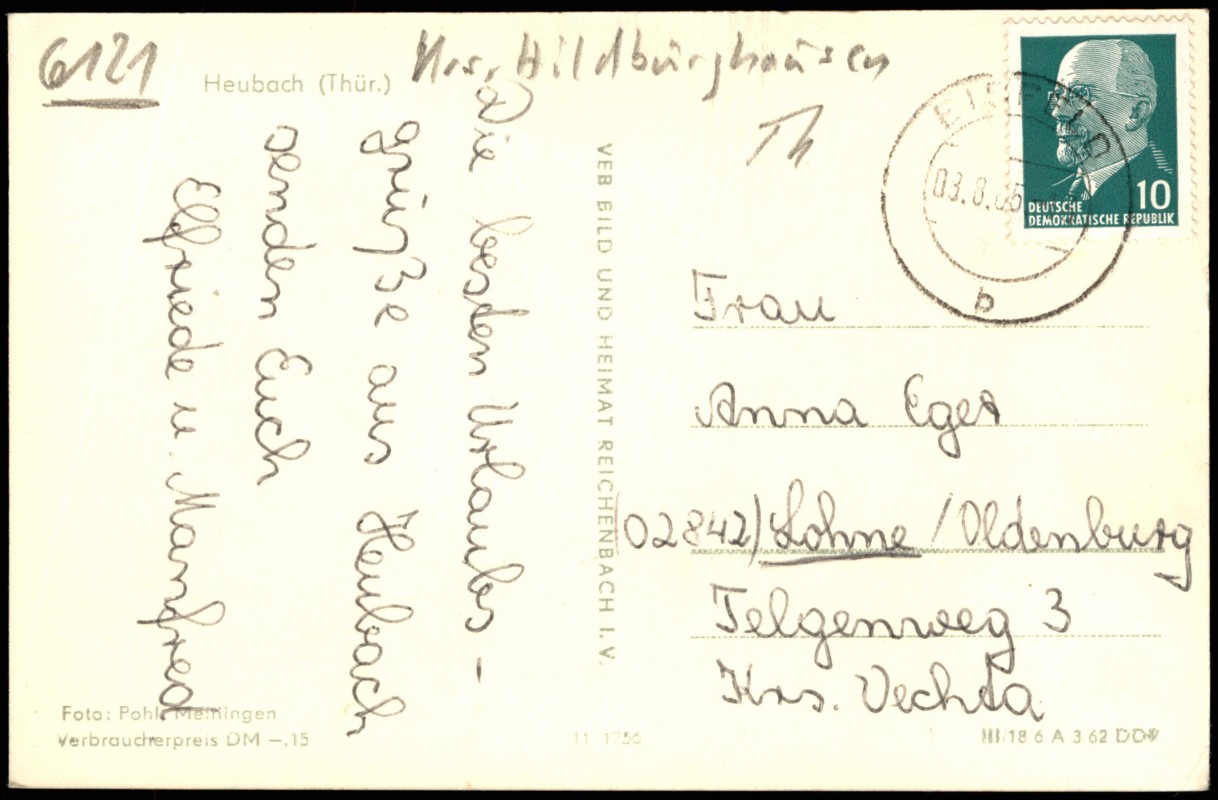 6121
Heubach (Thür.)
Krs. Hildburghausen
Th
Die besten Urlaubs-
grüße aus Heubach
senden Euch
Elfriede u. Manfred
VEB BILD UND HEIMAT REICHENBACH I. V.
EISFELD
03.8.65
b
10
DEUTSCHE
DEMOKRATISCHE REPUBLIK
Frau
Anna Eger
(02842) Lohne / Oldenburg
Telgenweg 3
Krs. Vechta
Foto: Pohl, Meiningen
Verbraucherpreis DM –.15
11 1756
III/18 6 A 3 62 DDR